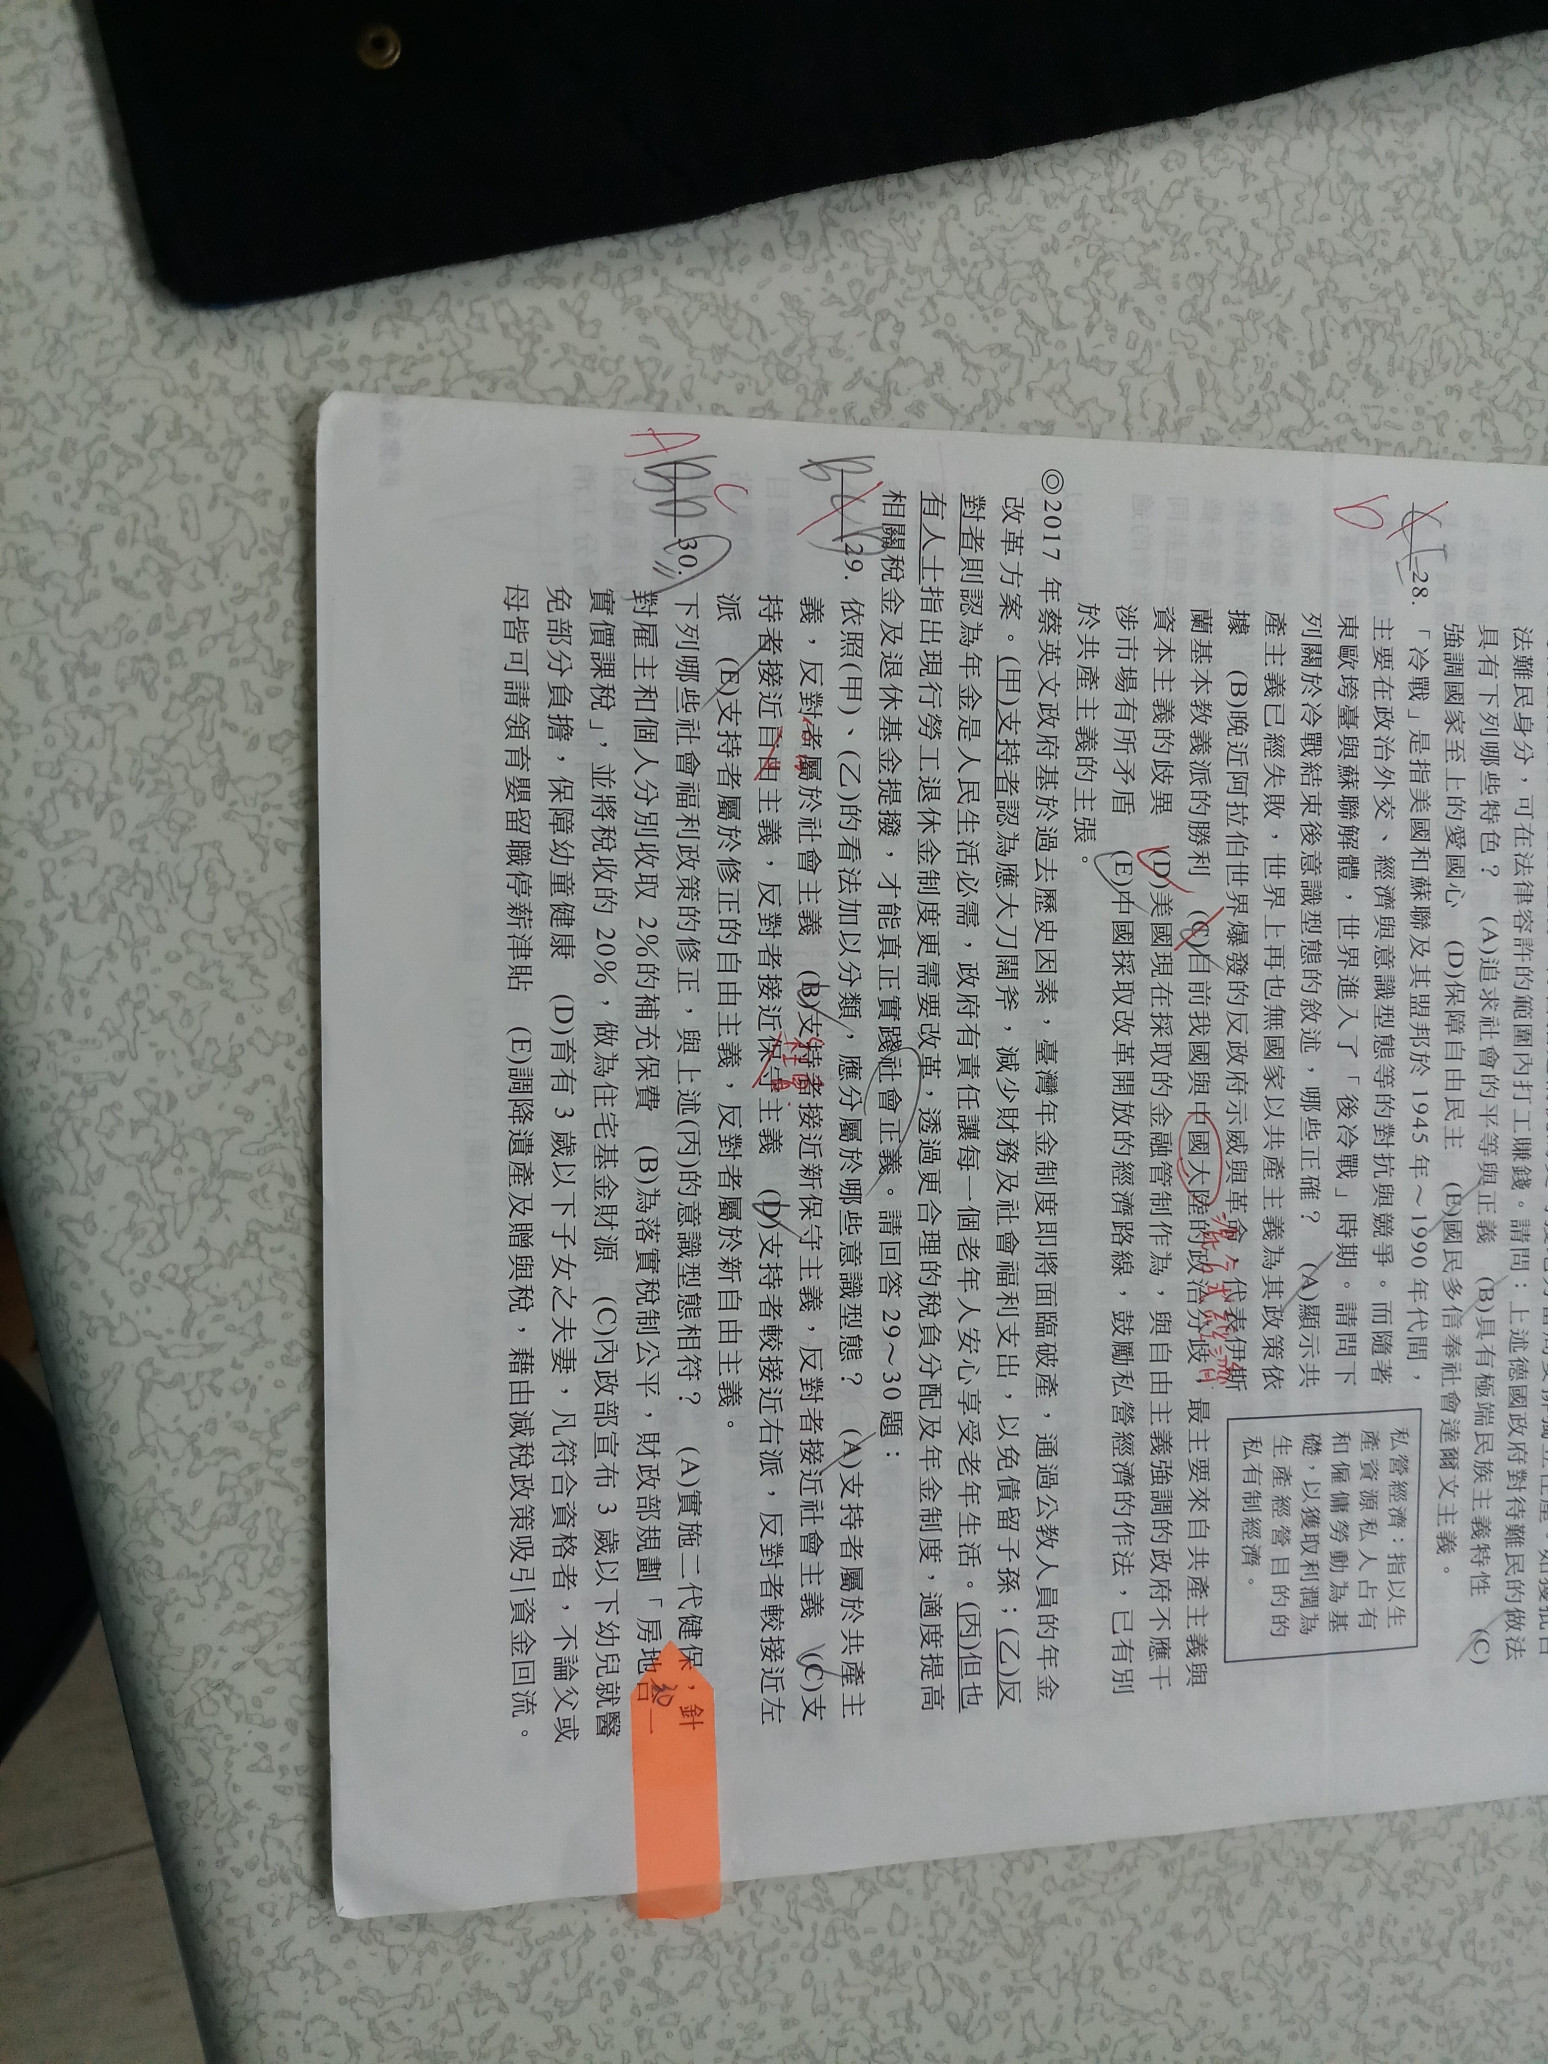 法難民身分，可在法律容許的範圍內打工賺錢。請問：上述德國政府對待難民的做法
具有下列哪些特色？ (A)追求社會的平等與正義 (B)具有極端民族主義特性 (C)
強調國家至上的愛國心 (D)保障自由民主 (E)國民多信奉社會達爾文主義。
28. 「冷戰」是指美國和蘇聯及其盟邦於 1945 年～1990 年代間，
主要在政治外交、經濟與意識型態等的對抗與競爭。而隨著
東歐垮臺與蘇聯解體，世界進入了「後冷戰」時期。請問下
列關於冷戰結束後意識型態的敘述，哪些正確？ (A)顯示共
產主義已經失敗，世界上再也無國家以共產主義為其政策依
據 (B)晚近阿拉伯世界爆發的反政府示威與革命，代表伊斯
蘭基本教義派的勝利 (C)目前我國與中國大陸的政治分歧，最主要來自共產主義與
資本主義的歧異 (D)美國現在採取的金融管制作為，與自由主義強調的政府不應干
涉市場有所矛盾 (E)中國採取改革開放的經濟路線，鼓勵私營經濟的作法，已有別
於共產主義的主張。
私營經濟：指以生
產資源私人占有
和僱傭勞動為基
礎，以獲取利潤為
生產經營目的的
私有制經濟。
D
◎2017 年蔡英文政府基於過去歷史因素，臺灣年金制度即將面臨破產，通過公教人員的年金
改革方案。(甲)支持者認為應大刀闊斧，減少財務及社會福利支出，以免債留子孫；(乙)反
對者則認為年金是人民生活必需，政府有責任讓每一個老年人安心享受老年生活。(丙)但也
有人士指出現行勞工退休金制度更需要改革，透過更合理的稅負分配及年金制度，適度提高
相關稅金及退休基金提撥，才能真正實踐社會正義。請回答 29～30 題：
29. 依照(甲)、(乙)的看法加以分類，應分屬於哪些意識型態？ (A)支持者屬於共產主
義，反對者屬於社會主義 (B)支持者接近新保守主義，反對者接近社會主義 (C)支
持者接近自由主義，反對者接近保守主義 (D)支持者較接近右派，反對者較接近左
派 (E)支持者屬於修正的自由主義，反對者屬於新自由主義。
A
C
30. 下列哪些社會福利政策的修正，與上述(丙)的意識型態相符？ (A)實施二代健保，針
對雇主和個人分別收取 2%的補充保費 (B)為落實稅制公平，財政部規劃「房地合一
實價課稅」，並將稅收的 20%，做為住宅基金財源 (C)內政部宣布 3 歲以下幼兒就醫
免部分負擔，保障幼童健康 (D)育有 3 歲以下子女之夫妻，凡符合資格者，不論父或
母皆可請領育嬰留職停薪津貼 (E)調降遺產及贈與稅，藉由減稅政策吸引資金回流。